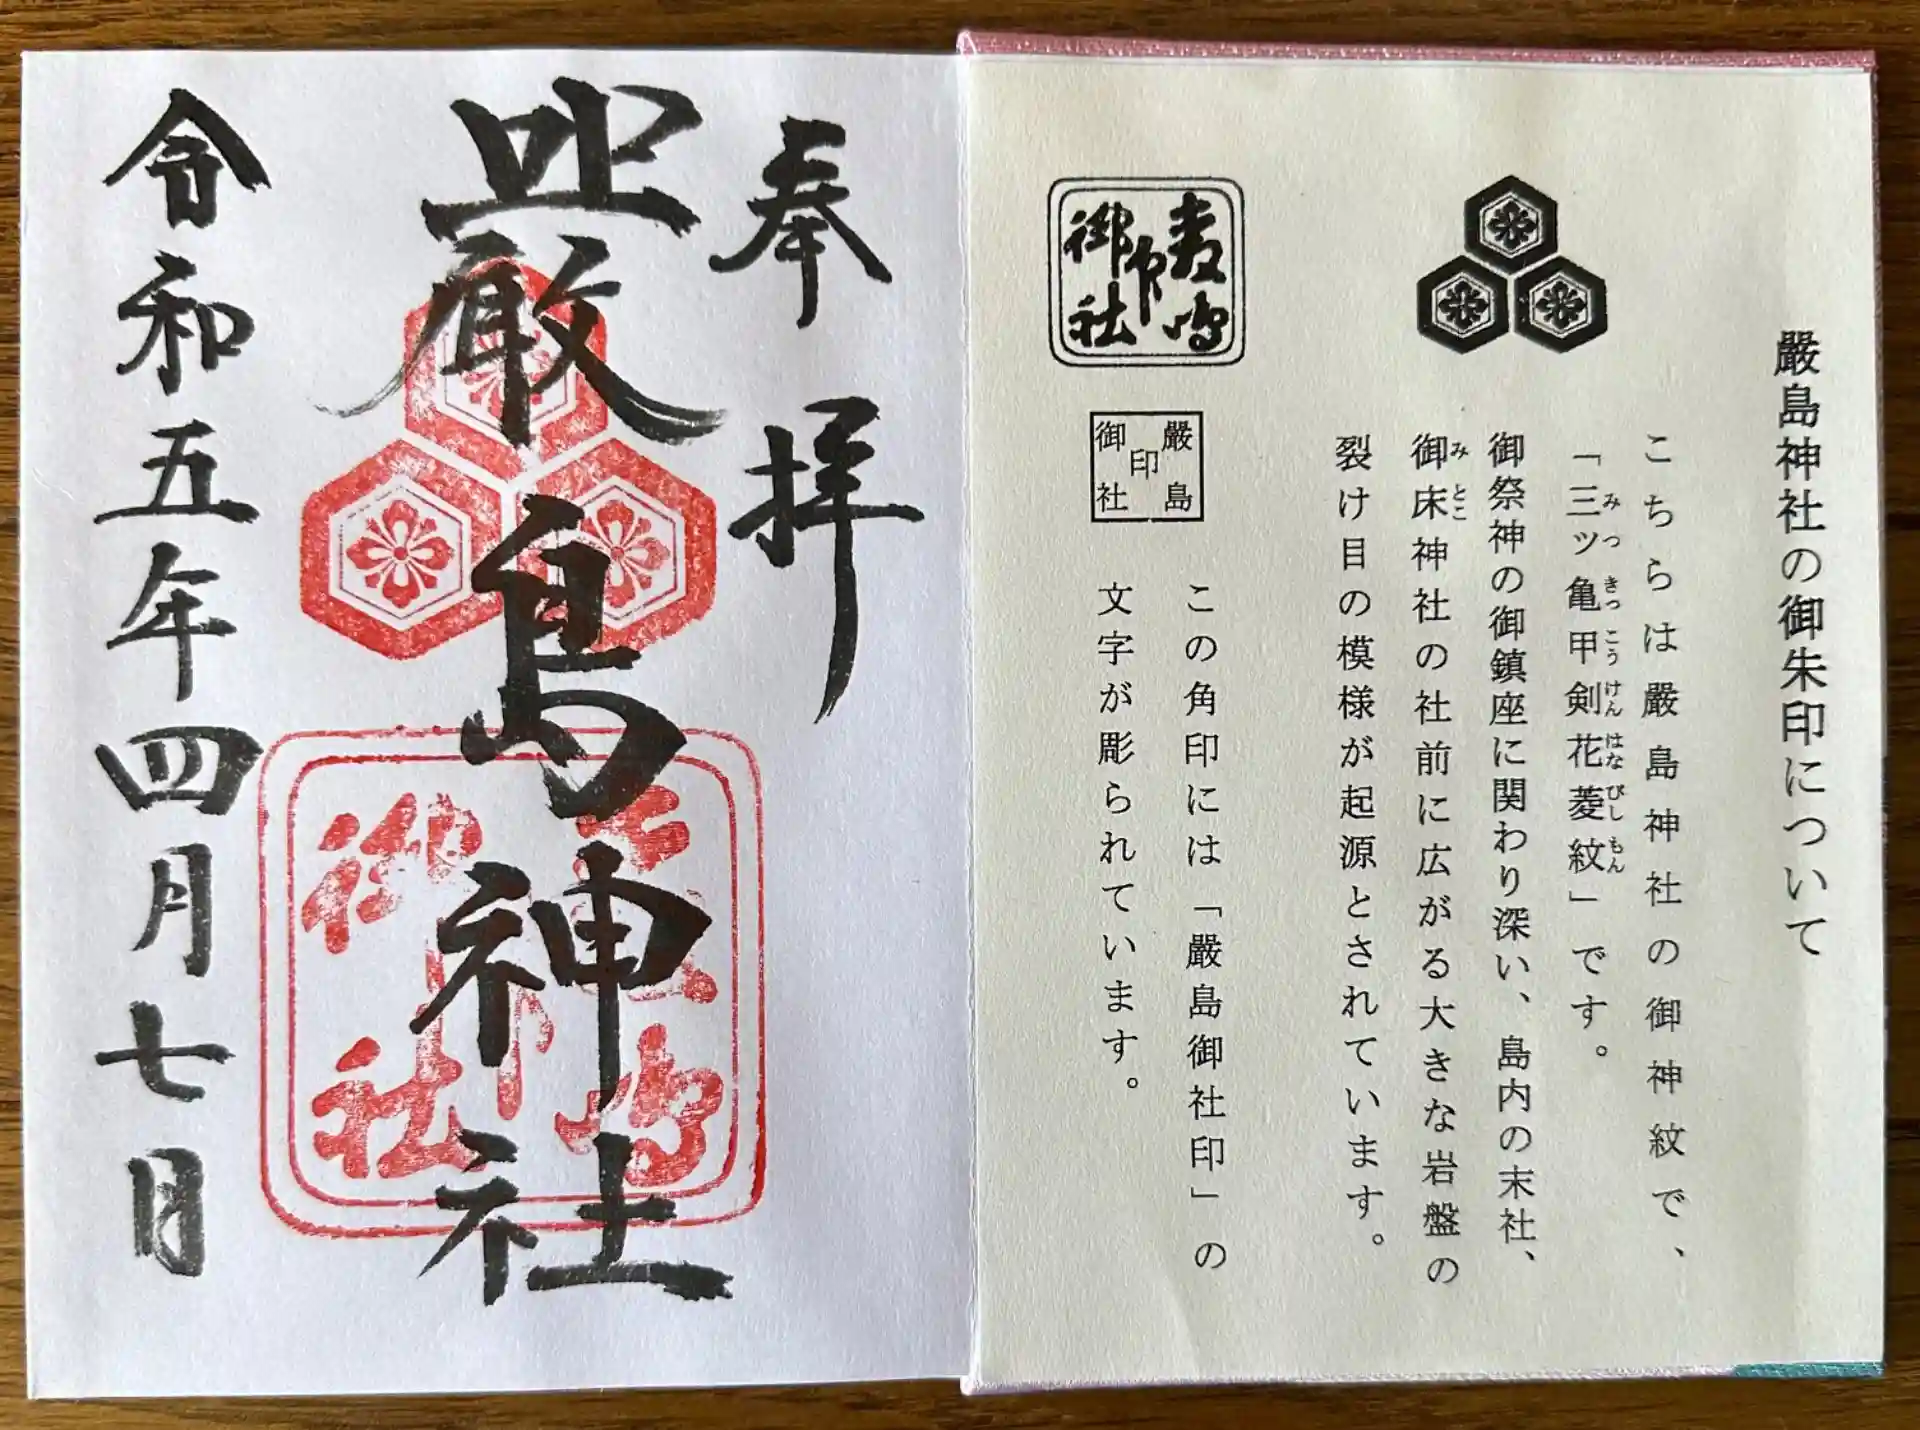 嚴島神社の御朱印について
こちらは嚴島神社の御神紋で、
「三ッ亀甲剣花菱紋」です。
みつきっこうけんはなびしもん
御祭神の御鎮座に関わり深い、島内の末社、
御床神社の社前に広がる大きな岩盤の
みとこ
裂け目の模様が起源とされています。
この角印には「嚴島御社印」の
文字が彫られています。
嚴島
印
御社
奉拝
嚴島神社
令和五年四月七日